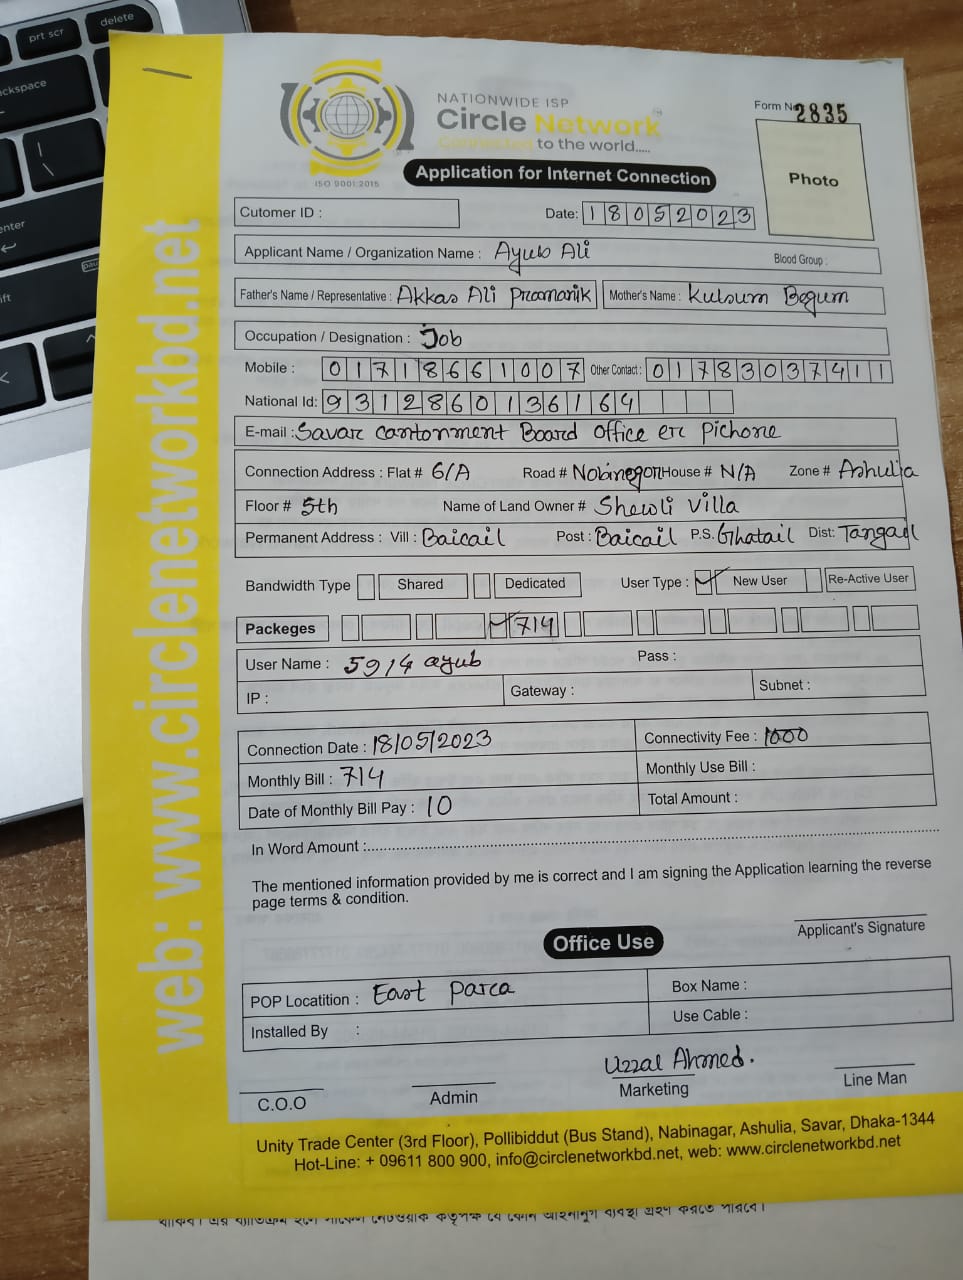 prt scr
delete
ckspace
enter
NATIONWIDE ISP
Circle Network
Connected to the world.....
ISO 9001:2015
Form No 2835
Photo
Application for Internet Connection
Cutomer ID :
Date: 18052023
Applicant Name / Organization Name : Ayub Ali
Blood Group :
Father's Name / Representative : Akkas Ali Pramanik
Mother's Name : Kulsum Begum
Occupation / Designation : Job
Mobile : 01718661007
Other Contact : 01783037411
National Id: 9312860136164
E-mail : Savar cantonment Board office er Pichone
Connection Address : Flat # 6/A Road # Nobinogor House # N/A Zone # Ashulia
Floor # 5th Name of Land Owner # Shewli Villa
Permanent Address : Vill : Baicail Post : Baicail P.S. Ghatail Dist: Tangail
Bandwidth Type Shared Dedicated User Type : ✓ New User Re-Active User
Packeges ✓ 714
User Name : 5914 ayub Pass :
IP : Gateway : Subnet :
Connection Date : 18/05/2023 Connectivity Fee : 1000
Monthly Bill : 714 Monthly Use Bill :
Date of Monthly Bill Pay : 10 Total Amount :
In Word Amount :
The mentioned information provided by me is correct and I am signing the Application learning the reverse
page terms & condition.
Applicant's Signature
Office Use
POP Locatition : East Parca Box Name :
Installed By : Use Cable :
Uzzal Ahmed.
C.O.O Admin Marketing Line Man
Unity Trade Center (3rd Floor), Pollibiddut (Bus Stand), Nabinagar, Ashulia, Savar, Dhaka-1344
Hot-Line: + 09611 800 900, info@circlenetworkbd.net, web: www.circlenetworkbd.net
web: www.circlenetworkbd.net